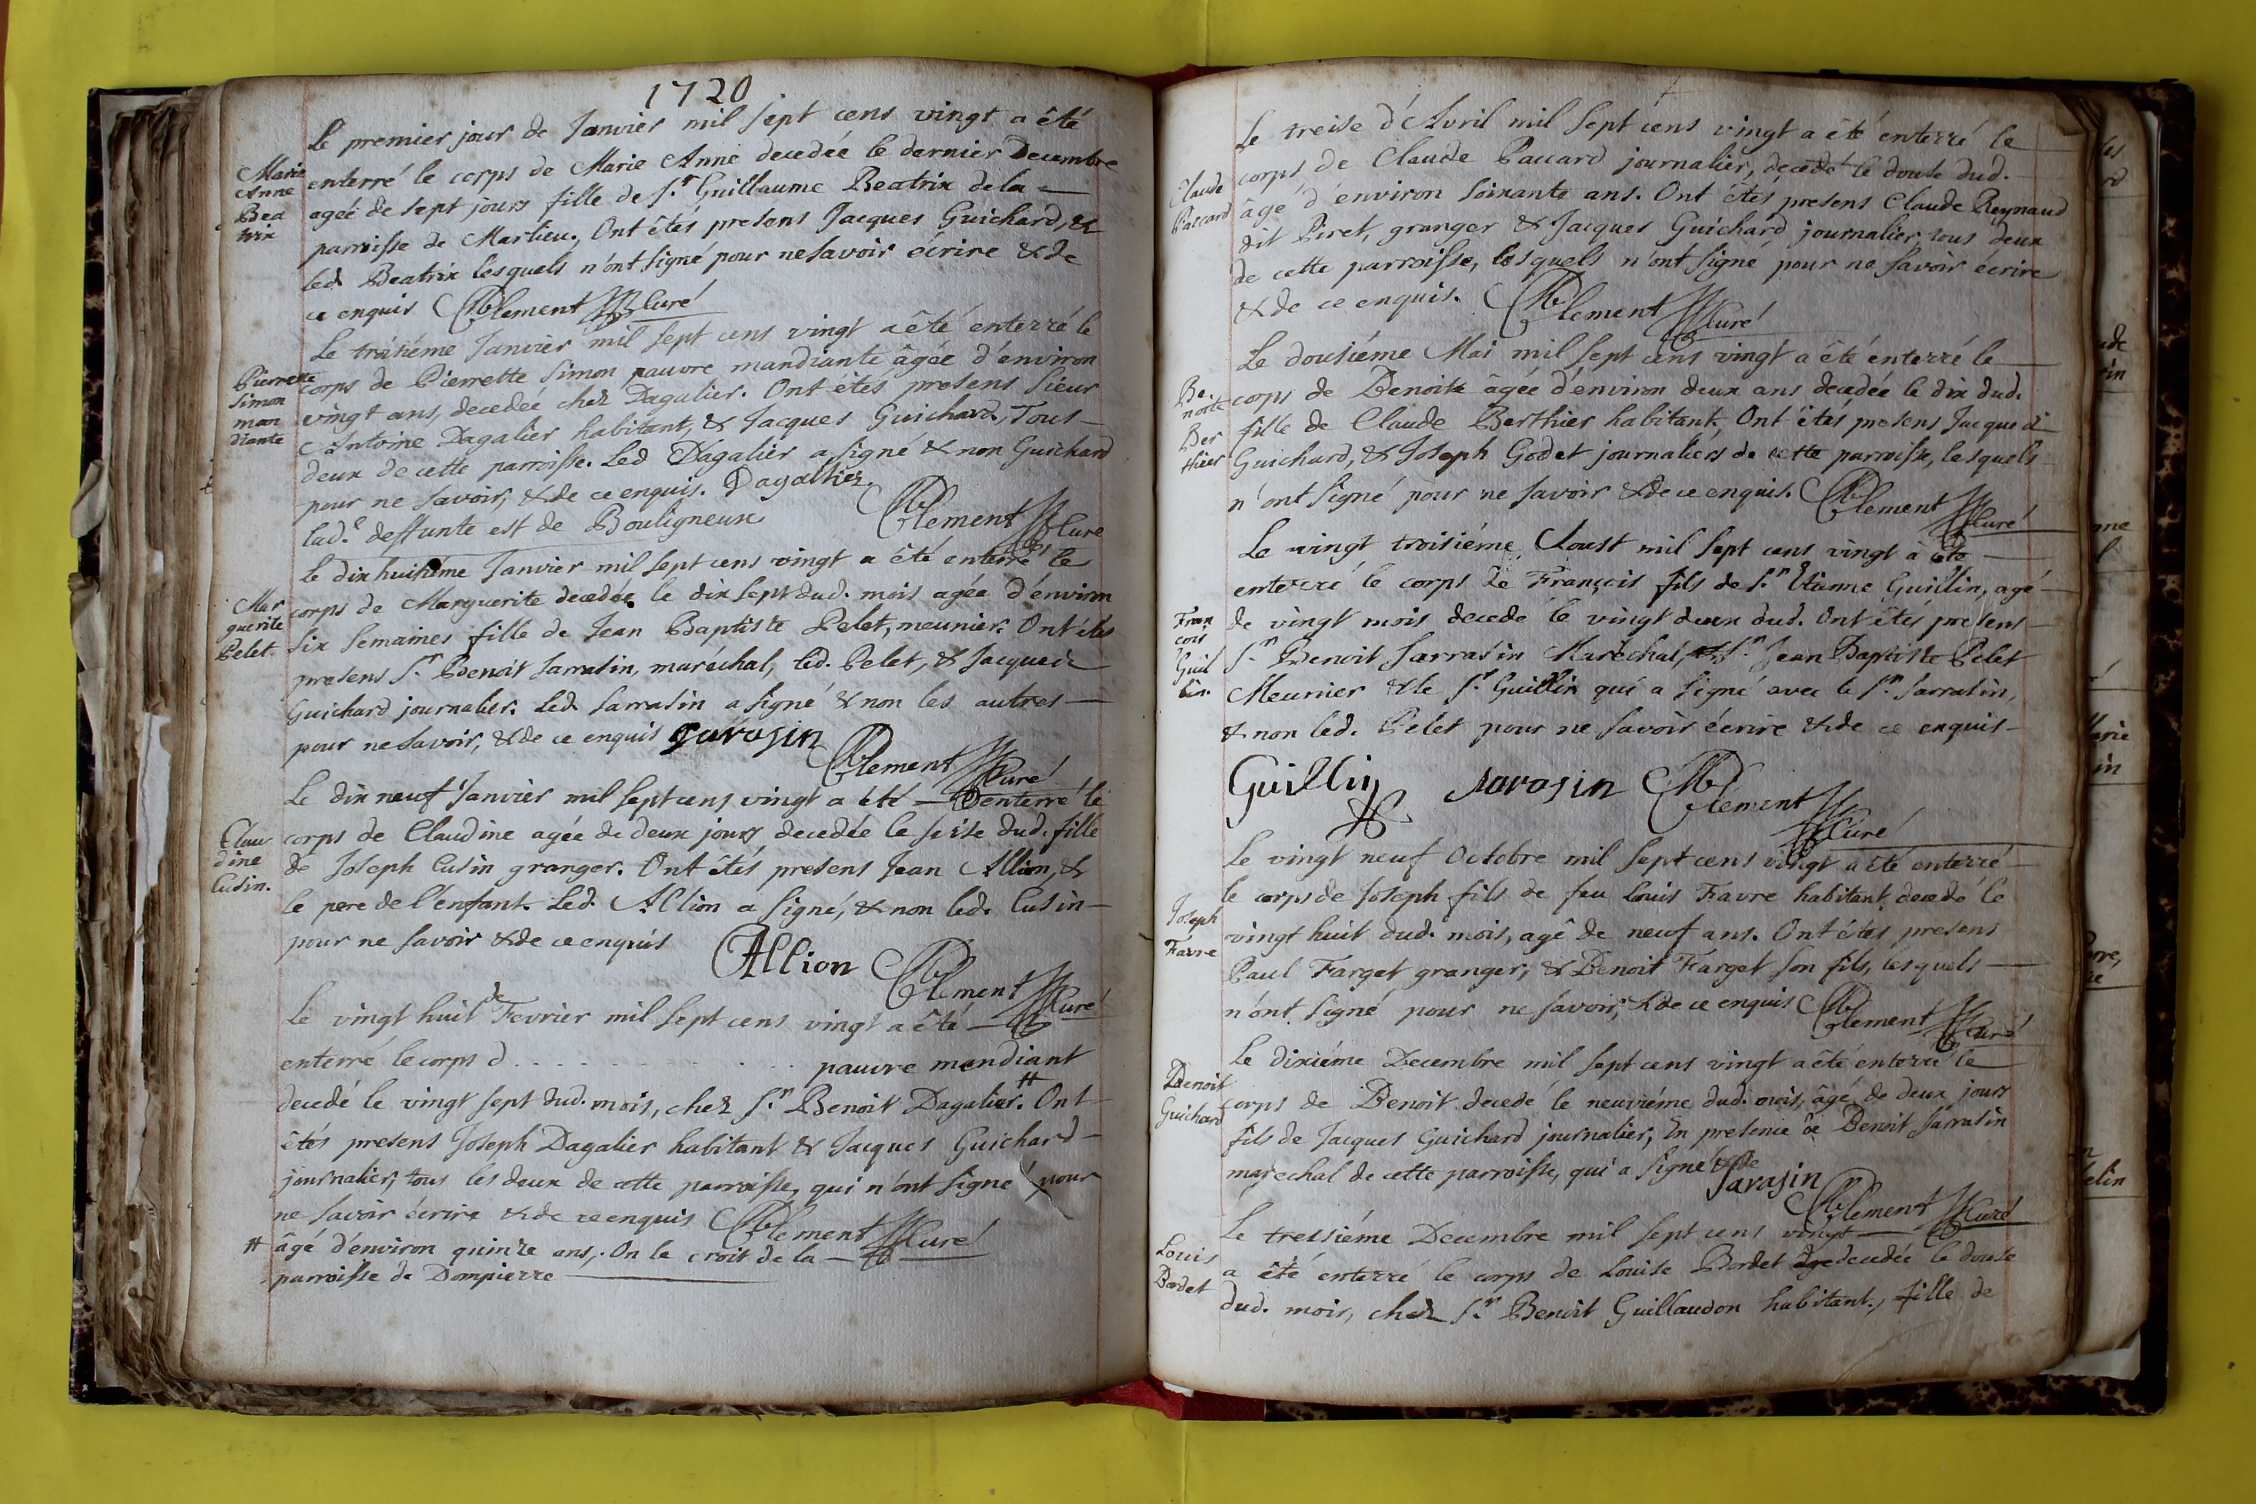 1720
Le premier jour de Janvier mil sept cens vingt a êté
Marie
Anne
Bea
trix
enterré le corps de Marie Anne decedée le dernier Decembre
agée de sept jours fille de Sr. Guillaume Beatrix de la
parroisse de Marlieu, Ont êtés presens Jacques Guichard, &
led Beatrix lesquels n'ont signé pour ne savoir écrire & de
ce enquis Clement Curé
Le troisiéme Janvier mil sept cens vingt a êté enterré le
Pierrette
Simon
man
diante
corps de Pierrette Simon pauvre mandiante âgée d'environ
vingt ans, decedée chez Dagalier. Ont êtés presens Sieur
Antoine Dagalier habitant, & Jacques Guichard, Tous
deux de cette parroisse. Led Dagalier a signé & non Guichard
pour ne savoir, & de ce enquis. Dagallier
lad.e deffunte est de Bouligneux Clement Curé
Le dix huitiéme Janvier mil sept cens vingt a êté enterré le
Mar
guerite
Pelet.
corps de Marguerite decedée le dix sept dud. mois agée d'environ
six semaines fille de Jean Baptiste Pelet, meunier. Ont êtés
presens Sr. Benoit Sarrasin, maréchal, led. Pelet, & Jacques
Guichard journalier. Led. Sarrasin a signé & non les autres
pour ne savoir, & de ce enquis sarasin
Clement Curé
Le dix neuf Janvier mil sept cens vingt a êté enterré le
Clau
dine
Cusin.
corps de Claudine agée de deux jours decedée le seise dud. fille
de Joseph Cusin granger. Ont êtés presens Jean Allion, &
le pere de l'enfant. Led. Allion a signé, & non led. Cusin
pour ne savoir & de ce enquis
Allion Clement Curé
Le vingt huit de Fevrier mil sept cens vingt a êté
enterré le corps d . . . . . . . . . . . pauvre mandiant
decedé le vingt sept dud. mois, chez Sr. Benoit Dagalier.# Ont
êtés presens Joseph Dagalier habitant & Jacques Guichard
journalier, tous les deux de cette parroisse, qui n'ont signé pour
ne savoir écrire & de ce enquis Clement Curé
# âgé d'environ quinze ans, On le croit de la
parroisse de Dompierre
Le treise d'Avril mil sept cens vingt a êté enterré le
Claude
Paccard
corps de Claude Paccard journalier, decedé le douse dud.
âgé d'environ soixante ans. Ont êtés presens Claude Reynaud
dit Piret, granger & Jacques Guichard journalier, tous deux
de cette parroisse, lesquels n'ont signé pour ne savoir écrire
& de ce enquis. Clement Curé
Le dousiéme Mai mil sept cens vingt a êté enterré le
Be.
noite
Ber
thier
corps de Benoite âgée d'environ deux ans decedée le dix dud.
fille de Claude Berthier habitant, Ont êtés presens Jacques
Guichard, & Joseph Godet journaliers de cette parroisse, lesquels
n'ont signé pour ne savoir & de ce enquis. Clement Curé
Le vingt troisiéme Aoust mil sept cens vingt a êté
enterré le corps de François fils de Sr. Etienne Guillin, agé
Fran
cois
Guil
lin.
de vingt mois decedé le vingt deux dud. Ont êtés presens
Sr. Benoit Sarrasin Maréchal, & Sr. Jean Baptiste Pelet
Meunier & le Sr. Guillin qui a signé avec le Sr. Sarrasin,
& non led. Pelet pour ne savoir écrire & de ce enquis
Guillin sarasin Clement Curé
Le vingt neuf Octobre mil sept cens vingt a êté enterré
Joseph
Favre
le corps de Joseph fils de feu Louis Favre habitant decedé le
vingt huit dud. mois, agé de neuf ans. Ont êtés presens
Paul Farget granger, & Benoit Farget son fils, lesquels
n'ont signé pour ne savoir, & de ce enquis Clement Curé
Le dixiéme Decembre mil sept cens vingt a êté enterré le
Benoit
Guichard
corps de Benoit decedé le neuviéme dud. mois, âgé de deux jours
fils de Jacques Guichard journalier, En presence de Benoit Sarrasin
marechal de cette parroisse, qui a signé
sarasin Clement Curé
Le tressiéme Decembre mil sept cens vingt
Louis
Bordet
a êté enterré le corps de Louise Bordet decedée le douse
dud. mois, chez Sr. Benoit Guillaudon habitant, fille de